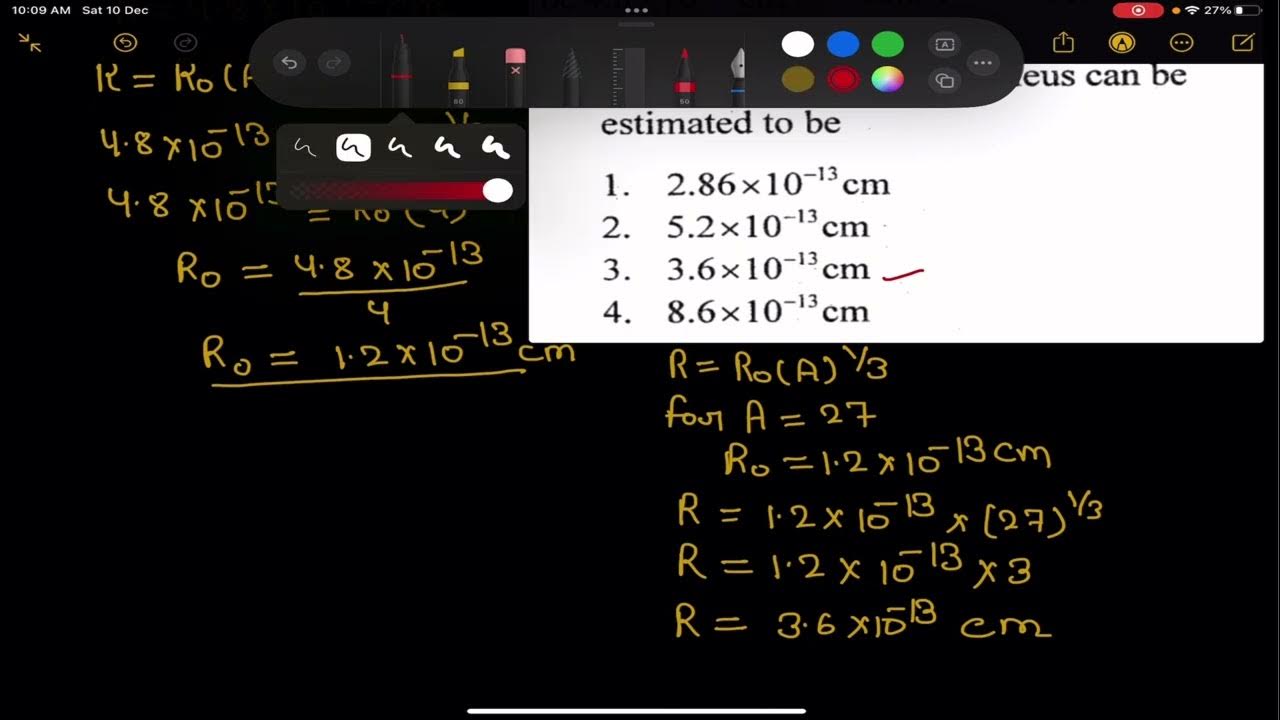 10:09 AM Sat 10 Dec
27%
80
50
R = R₀(A
4.8×10⁻¹³
4.8×10⁻¹³ = R₀(4)
R₀ = 4.8×10⁻¹³
4
R₀ = 1.2×10⁻¹³ cm
eus can be
estimated to be
1. 2.86×10⁻¹³ cm
2. 5.2×10⁻¹³ cm
3. 3.6×10⁻¹³ cm
4. 8.6×10⁻¹³ cm
R = R₀(A)^1/3
for A = 27
R₀ = 1.2×10⁻¹³ cm
R = 1.2×10⁻¹³ × (27)^1/3
R = 1.2×10⁻¹³ × 3
R = 3.6×10⁻¹³ cm